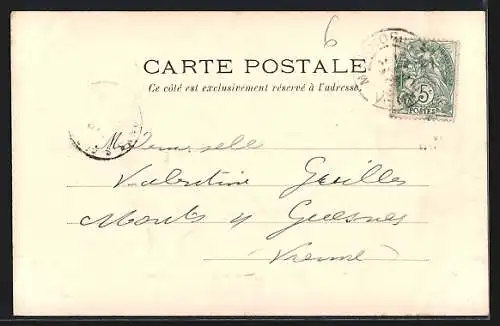 6
CARTE POSTALE
Ce côté est exclusivement réservé à l'adresse.
5c
POSTES
Mademoiselle
Valentine Guilles
Monts s/ Guesnes
Vienne